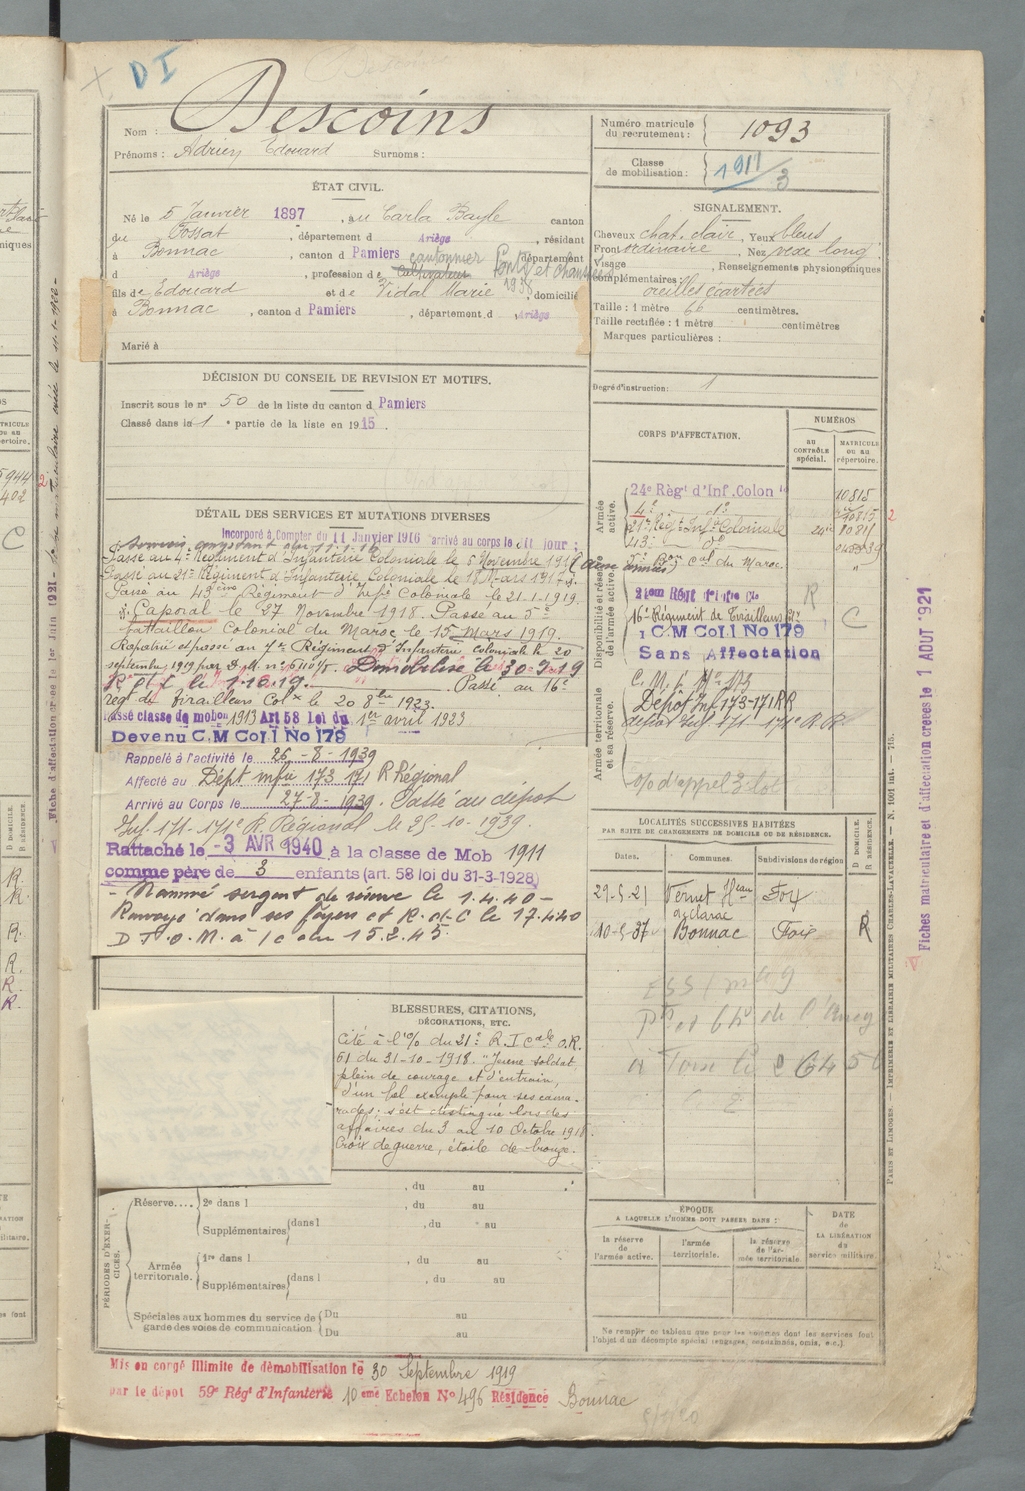 D I
Nom : Descoins
Prénoms : Adrien Edouard Surnoms :
Numéro matricule du recrutement : 1093
Classe de mobilisation : 1911/3
ÉTAT CIVIL.
Né le 5 Janvier 1897, au Carla Bayle canton
du Fossat, département d Ariège, résidant
à Bonnac, canton d Pamiers département
d Ariège, profession de cultivateur cantonnier Ponts et chaussées 1938
fils de Edouard et de Vidal Marie, domicilié
à Bonnac, canton d Pamiers, département d Ariège
Marié à
SIGNALEMENT.
Cheveux chat. clair, Yeux bleus
Front ordinaire, Nez vexe long.
Visage , Renseignements physionomiques
complémentaires :
oreilles écartées
Taille : 1 mètre 66 centimètres.
Taille rectifiée : 1 mètre centimètres
Marques particulières :
Degré d'instruction : 1
DÉCISION DU CONSEIL DE REVISION ET MOTIFS.
Inscrit sous le n° 50 de la liste du canton d Pamiers
Classé dans la 1e partie de la liste en 1915.
CORPS D'AFFECTATION.
NUMÉROS
au CONTRÔLE spécial.
MATRICULE ou au répertoire.
Armée active.
24e Règt d'Inf. Colon le 10815
4e do 10815
21e Régt Infie Coloniale 1021
43e do
5e Bon Cal du Maroc.
Disponibilité et réserve de l'armée active.
R
16e Régiment de Tirailleurs C
C M Col. 1 No 179
Sans Affectation
Armée territoriale et sa réserve.
Dépôt Inf 173-171 RR
dépôt Inf 171-171e R.R
DÉTAIL DES SERVICES ET MUTATIONS DIVERSES
Incorporé à Compter du 11 Janvier 1916 arrivé au corps le dit jour ;
Passé au 4e Régiment d'Infanterie Coloniale le 5 Novembre 1916
Passé au 21e Régiment d'Infanterie Coloniale le 18 Mars 1917.
Passé au 43ème Régiment d'Infie Coloniale le 21.1.1919.
Caporal le 27 Novembre 1918. Passé au 5e
bataillon Colonial du Maroc le 15 Mars 1919.
Rapatrié et passé au 7e Régiment d'Infanterie coloniale le 20
septembre 1919 Démobilisé le 30-9-19
Passé au 16e
rég. de Tirailleurs Colx le 20 8bre 1923.
Passé classe de mobon 1913 Art 58 Loi du 1er avril 1923
Devenu C.M Col. 1 No 179
Rappelé à l'activité le 26-8-1939
Affecté au Dépt infie 173 171 R Régional
Arrivé au Corps le 27-8-1939. Passé au dépôt
Inf. 171-171e R. Régional le 25-10-1939.
Rattaché le -3 AVR 1940 à la classe de Mob 1911
comme père de 3 enfants (art. 58 loi du 31-3-1928)
- Nommé sergent de réserve le 1.4.40 -
Renvoyé dans ses foyers et R.d.C le 17.4.40
D T O. M. à / c du 15.2.45.
LOCALITÉS SUCCESSIVES HABITÉES
PAR SUITE DE CHANGEMENTS DE DOMICILE OU DE RÉSIDENCE.
Dates. Communes. Subdivisions de région D DOMICILE. R RÉSIDENCE.
29-5-21 Vernet Foix
10-5-37 Bonnac Foix R
BLESSURES, CITATIONS,
DÉCORATIONS, ETC.
Cité à l'O/ du 21e R.I Cale O.R.
61 du 31-10-1918. "Jeune soldat
plein de courage et d'entrain,
d'un bel exemple pour ses cama-
rades ; s'est distingué lors des
affaires du 3 au 10 Octobre 1918.
Croix de guerre, étoile de bronze.
PÉRIODES D'EXERCICES.
, du au
Réserve.... 2e dans l , du au
Supplémentaires dans l , du au
Armée territoriale. 1re dans l , du au
Supplémentaires dans l , du au
Spéciales aux hommes du service de garde des voies de communication Du au
Du au
ÉPOQUE
A LAQUELLE L'HOMME DOIT PASSER DANS :
la réserve de l'armée active.
l'armée territoriale.
la réserve de l'armée territoriale.
DATE de LA LIBÉRATION du service militaire.
Ne remplir ce tableau que pour les hommes dont les services font
l'objet d'un décompte spécial (engagés, condamnés, omis, etc.)
Mis en congé illimité de démobilisation le 30 Septembre 1919
par le dépôt 59e Régt d'Infanterie 10eme Echelon No 496 Résidence Bonnac
Fiches matriculaire et d'affectation créées le 1 AOUT 1921
PARIS ET LIMOGES. — IMPRIMERIE ET LIBRAIRIE MILITAIRES CHARLES-LAVAUZELLE.